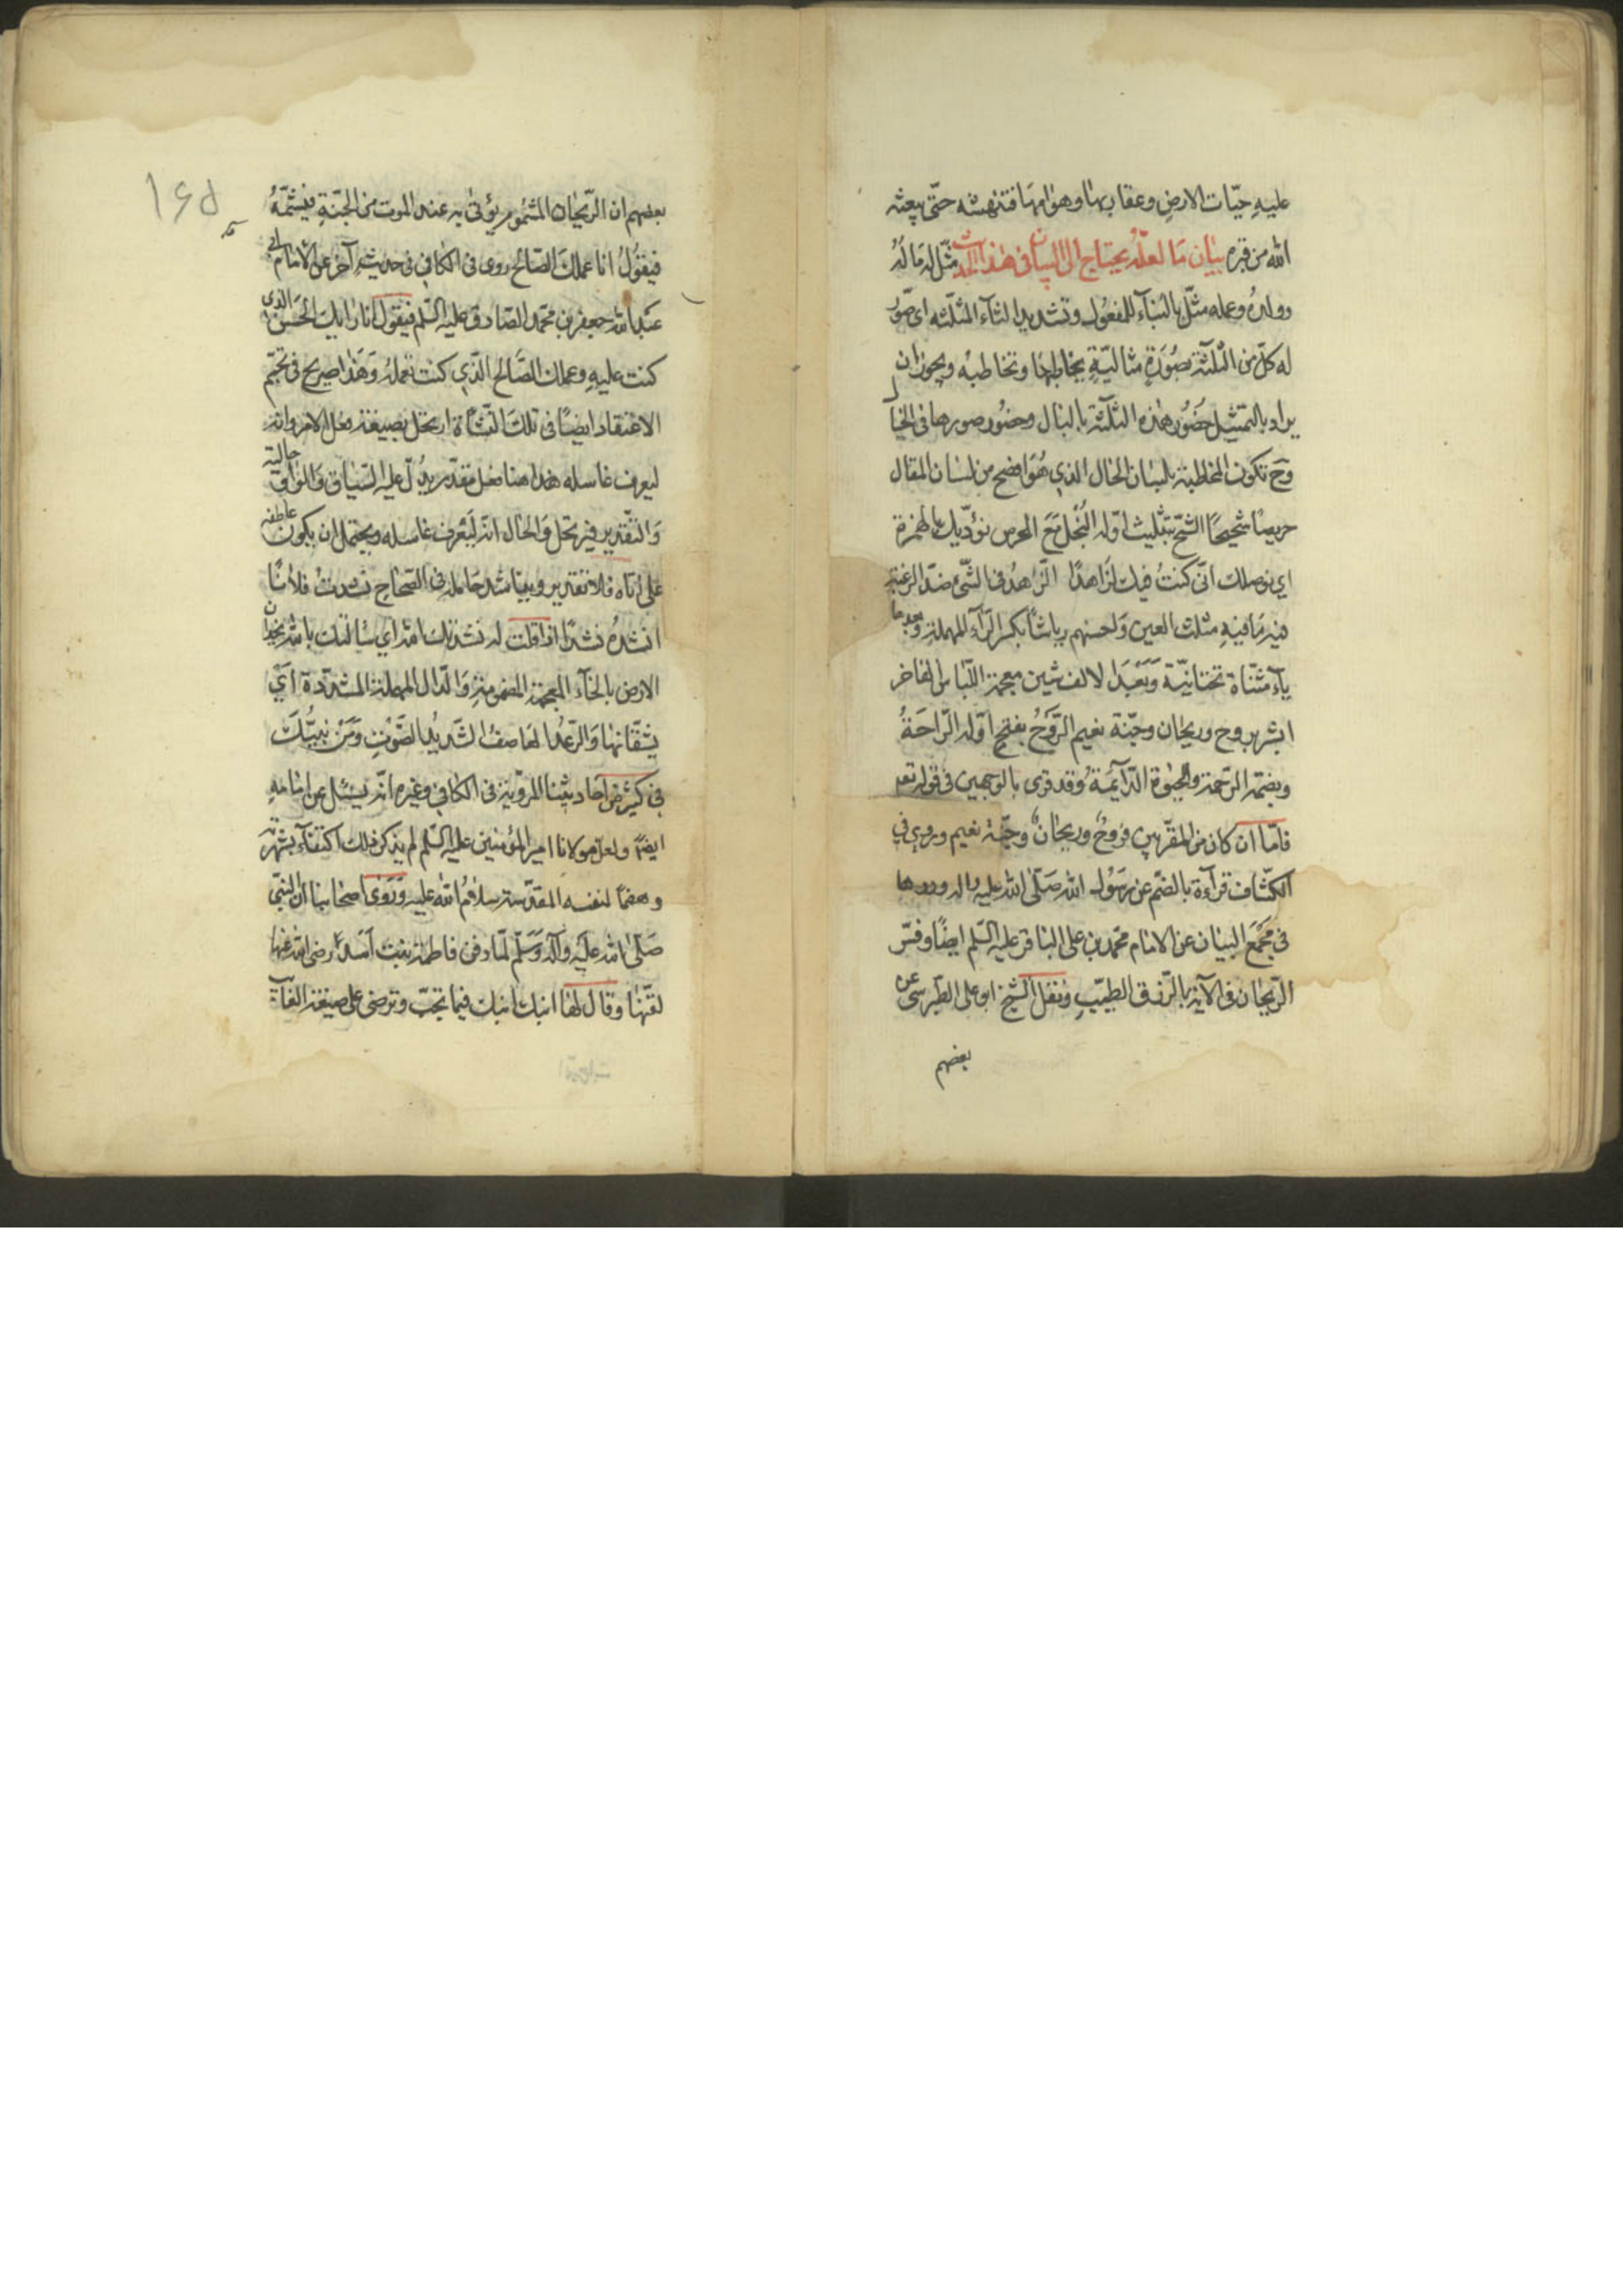 عليهِ حيّات الارضِ وعقاربها وهوامّها فتنهشه حتّى يبعثه
الله من قبره بيان مَا لعلّه يحتاج الى البيان فى هذا الحديث مثّل له مَاله
وولدهُ وعمله مثّل بالبنآء للمفعول وتشديد الثآء المثلّثه اى صوّر
له كلّ من الثلثة بصُورَةٍ مثاليّةٍ يخاطبها وتخاطبه ويجوز ان
يراد بالتمثيل حضُور هذه الثلثة بالبال وحضور صورها فى الخيال
وح تكون المخاطبة بلسان الحال الذي هُوَ افصح من لسان المقال
حريصًا شحيحًا الشحّ بتثليث اوّله البُخل مَعَ الحرص نؤدّيك بالهمزة
اي نوصلك انّى كنتُ فيك لزاهدًا الزّاهدُ فى الشّىء ضدّ الرغبة
فيه مَا فيهِ مثلث العين وَاحسنهم رياشًا بكسر الرّآء المهملة وبعدها
يآء مثنّاة تحتانيّة وَبَعْدَ الالف شين معجمة اللّباس الفاخر
ابشر بروح وريحان وجنّة نعيم الرَّوحُ بفتح اوّله الرّاحَةُ
وبضمّه الرّحمة والحيٰوة الدّآئمَةُ وقد قرى بالوجهين فى قوله تعه
فامّا ان كان من المقرّبين فروحٌ وريحانٌ وجنّة نعيم وروي في
الكشّاف قرآءة بالضّم عن رسُول الله صَلّى الله عليه واله ورواها
فى مجمَع البيان عن الامام محمّد بن على الباقر عليه السّلم ايضًا وفسّر
الرّيحان فى الآية بالرّزق الطيّبِ ونقل الشيخ ابو على الطّبرسى عن
بعضهم
بعضهم ان الرّيحان المشمُوم يؤتى به عند الموت من الجنّةِ فيشمّهُ
فيقوُلُ انا عملك الصّالح روى فى الكافي فى حديث آخر عن الامام ابى
عبد الله جعفر بن محمّد الصّادق عليه السّلم فيقول انا رايك الحَسَن الذى
كنت عليهِ وعملك الصّالح الّذي كنت تعملهُ وَهَذا صريح فى تجسّم
الاعتقاد ايضًا فى تلك النّشأة ارتحل بصيغة فعل الامر وانّه
ليعرف غاسله هذا هنا فعل مقدّر يدُلّ عليه السّياق وَالواو حالية
وَالتقدير فيرتحل وَالحال انّه لَيَعْرِف غاسله ويحتمل ان يكون عاطفه
على اتاه فلا تقدير ويناشد حَامله فى الصّحاح نشدتُ فلانًا
انشدهُ نشدًا اذا قلت له نشدتك الله اي سالتك بالله يخدّان
الارض بالخآء المعجمة المضمومةِ وَالدّال المهملة المشدّدة اَيْ
يشقّانها وَالرّعد العَاصفُ الشّديدُ الصّوْتِ وَمَنْ نبيُّكَ
فى كثير من احاديثنا المرويّة فى الكافي وغيره انّه يسئل عن امامهِ
ايضًا ولعلّ مولانا امير المؤمنين عليه السّلم لم يذكر ذلك اكتفآء بشهرته
وهضمًا لنفسه المقدّسة سلامُ الله عليه وَرَوَى اصحابنا انّ النبّي
صَلّى الله عليَه وآله وَسَلّم لمّا دفن فاطمة بنت اَسَد رضى الله عنها
لقّنها وقال لها ابنك ابنك فيما تحبّ وترضى على صيغة الغآئب
۱۶۵